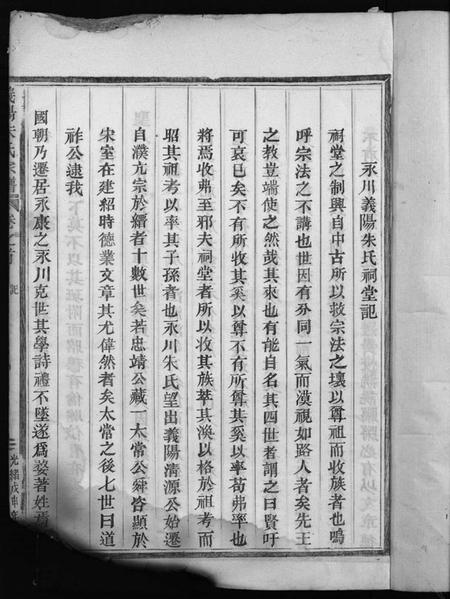 永川義陽朱氏祠堂記
祠堂之制興自中古所以救宗法之壞以尊祖而收族者也鳴
呼宗法之不講也世固有分同一氣而漠視如路人者矣先王
之教豈端使之然哉其來也有能自名其四世者謂之曰賢吁
可哀巳矣不有所收其奚以尊不有所尊其奚以率苟弗率也
將焉收弗至邪夫祠堂者所以收其族萃其渙以格於祖考而
昭其祖考以率其子孫者也永川朱氏望出義陽清源公始遷
自濮亢宗於縉者十數世矣若忠靖公藏一太常公舜咨顯於
宋室在建紹時德業文章其尤偉然者矣太常之後七世曰道
祚公逮我
國朝乃遷居永康之永川克世其學詩禮不墜遂爲婺著姓焉
義陽朱氏宗譜
卷之首
記
二
光緒戊申